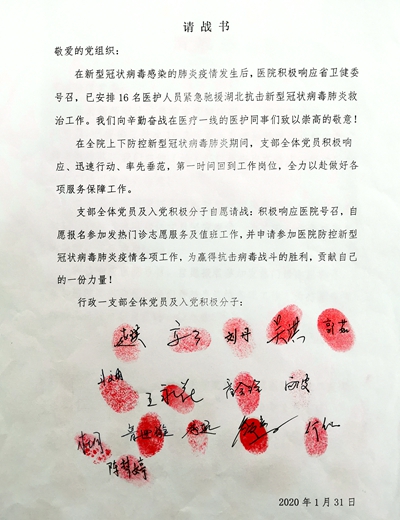 请战书
敬爱的党组织：
在新型冠状病毒感染的肺炎疫情发生后，医院积极响应省卫健委
号召，已安排16名医护人员紧急驰援湖北抗击新型冠状病毒肺炎救
治工作。我们向辛勤奋战在医疗一线的医护同事们致以崇高的敬意！
在全院上下防控新型冠状病毒肺炎期间，支部全体党员积极响
应、迅速行动、率先垂范，第一时间回到工作岗位，全力以赴做好各
项服务保障工作。
支部全体党员及入党积极分子自愿请战：积极响应医院号召，自
愿报名参加发热门诊志愿服务及值班工作，并申请参加医院防控新型
冠状病毒肺炎疫情各项工作，为赢得抗击病毒战斗的胜利，贡献自己
的一份力量！
行政一支部全体党员及入党积极分子：
刘丹 郭荔
陈梦婷
2020年1月31日